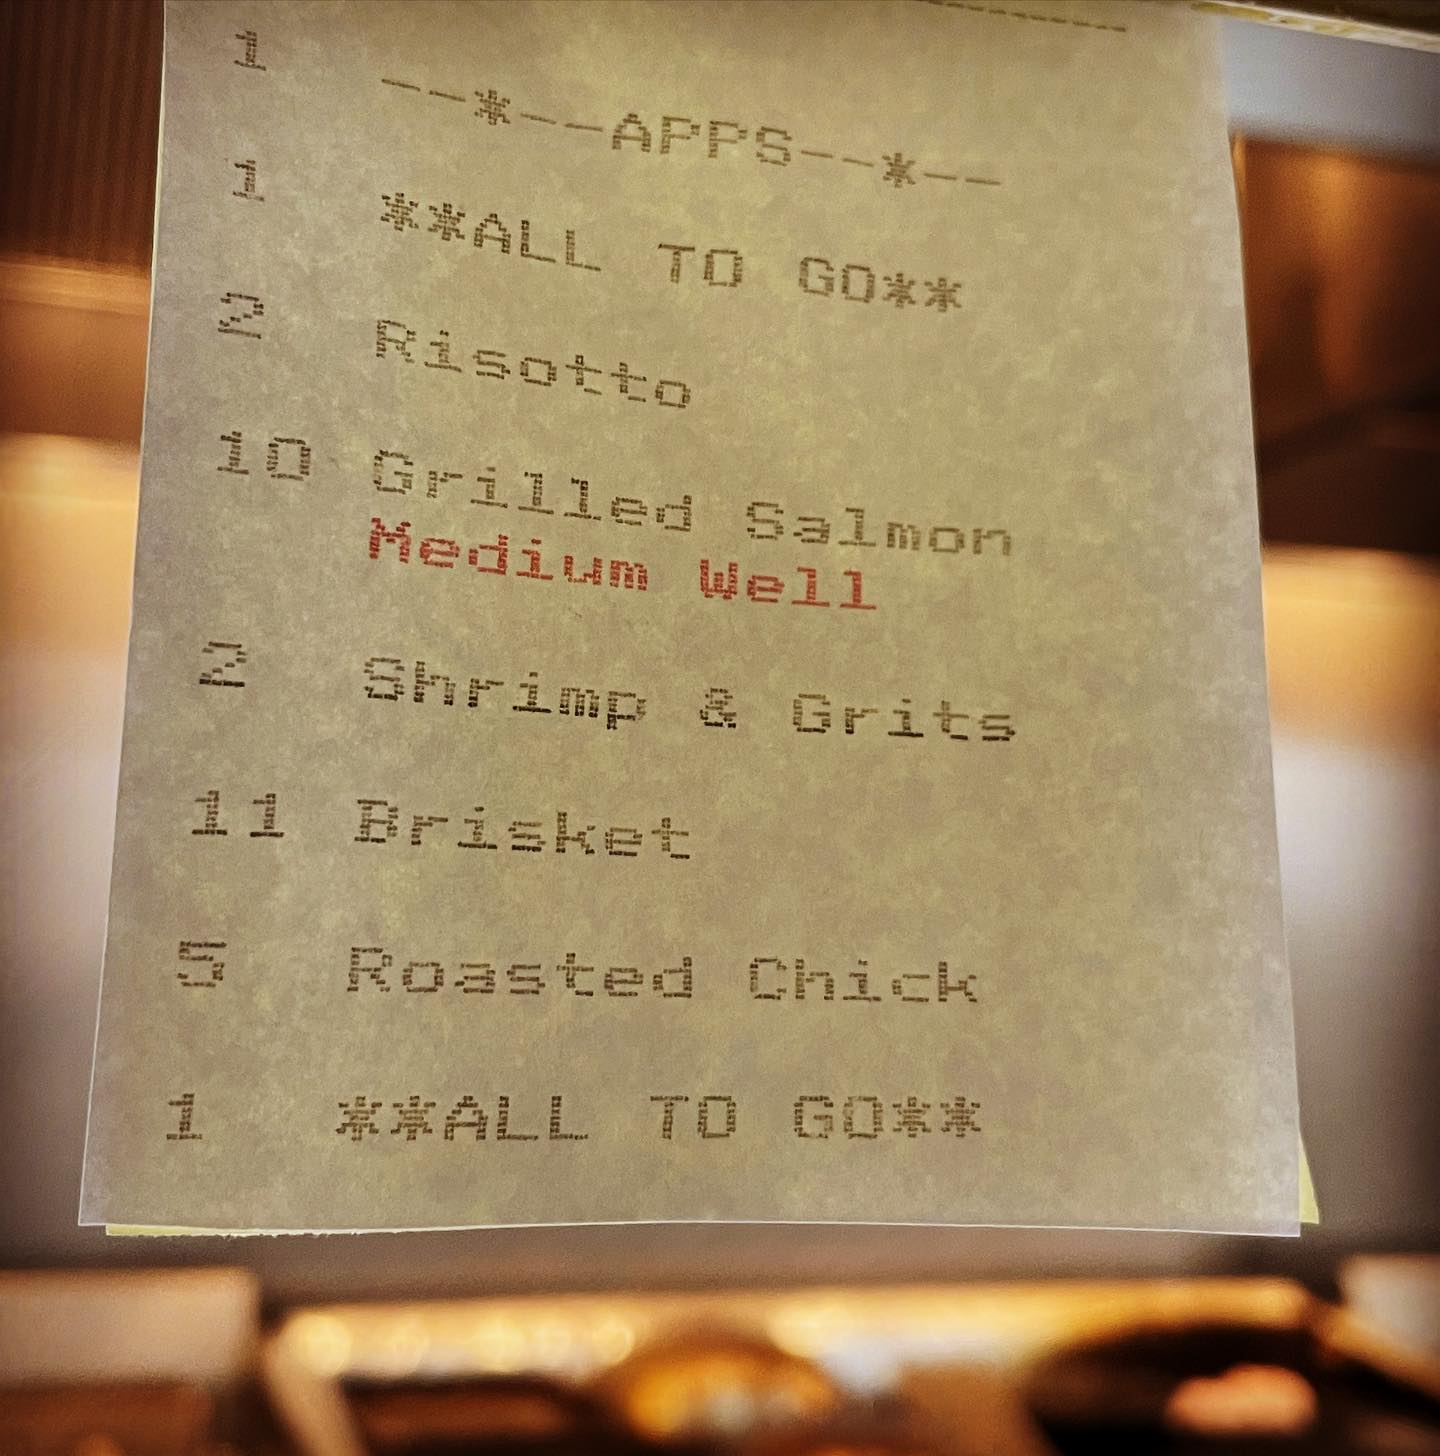 1 --*--APPS--*--
1 **ALL TO GO**
2 Risotto
10 Grilled Salmon
Medium Well
2 Shrimp & Grits
11 Brisket
5 Roasted Chick
1 **ALL TO GO**